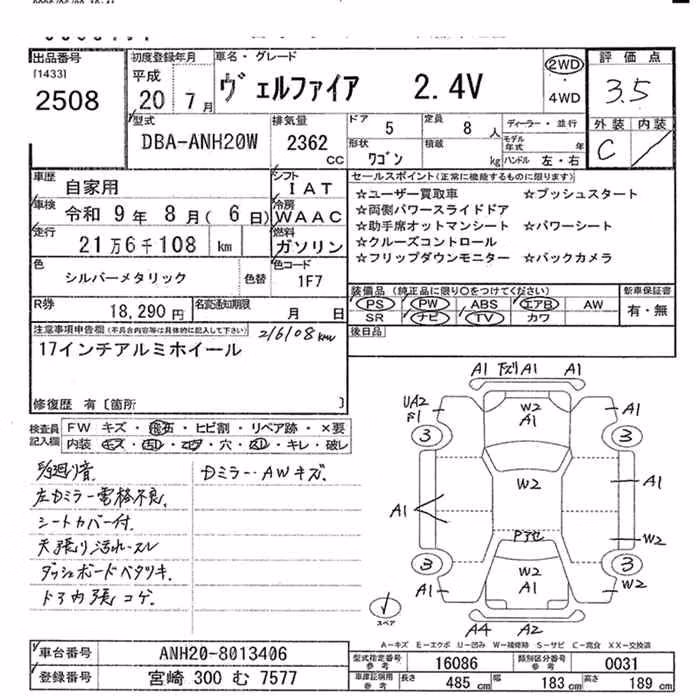 出品番号
[1433]
2508
初度登録年月
平成
20 7月
車名・グレード
ヴェルファイア 2.4V
2WD
・
4WD
評価点
3.5
外装 内装
C
型式
DBA-ANH20W
排気量
2362
CC
ドア
5
定員
8 人
ディーラー・並行
形状
ワゴン
積載
kg
モデル年式 年
ハンドル 左・右
車歴
自家用
シフト
IAT
車検
令和 9年 8月( 6日)
冷房
WAAC
走行
21万6千108 km
燃料
ガソリン
色
シルバーメタリック
色替
色コード
1F7
R券
18,290円
名変通知期限
月 日
セールスポイント(正常に機能するものに限ります)
☆ユーザー買取車 ☆プッシュスタート
☆両側パワースライドドア
☆助手席オットマンシート ☆パワーシート
☆クルーズコントロール
☆フリップダウンモニター ☆バックカメラ
装備品(純正品に限り○をつけてください)
PS PW ABS エアB AW
SR ナビ TV カワ
新車保証書
有・無
後日品
注意事項申告欄(不具合内容等は具体的に記入して下さい)
216108km
17インチアルミホイール
修復歴 有[箇所 ]
検査員記入欄
FW キズ・飛石・ヒビ割・リペア跡・×要
内装 キズ・凹・コゲ・穴・スレ・キレ・破レ
足廻り音
左Dミラー電格不良
シートカバー付
天張り汚れ・スレ
ダッシュボードベタツキ
ドア内張コゲ
Dミラー・AWキズ
A1 下ズリ A1 A1
UA2
F1
A1
W2
A1
3
3
W2
A1
A1
P アセ
W2
3
3
W2
A1
A1
W2
A4 A2
スペア
A-キズ E-エクボ U-凹み W-補修跡 S-サビ C-腐食 XX-交換済
車台番号
ANH20-8013406
登録番号
宮崎 300 む 7577
型式指定番号
参考
16086
類別区分番号
参考
0031
車庫証明用
参考
長さ
485 cm
幅
183 cm
高さ
189 cm